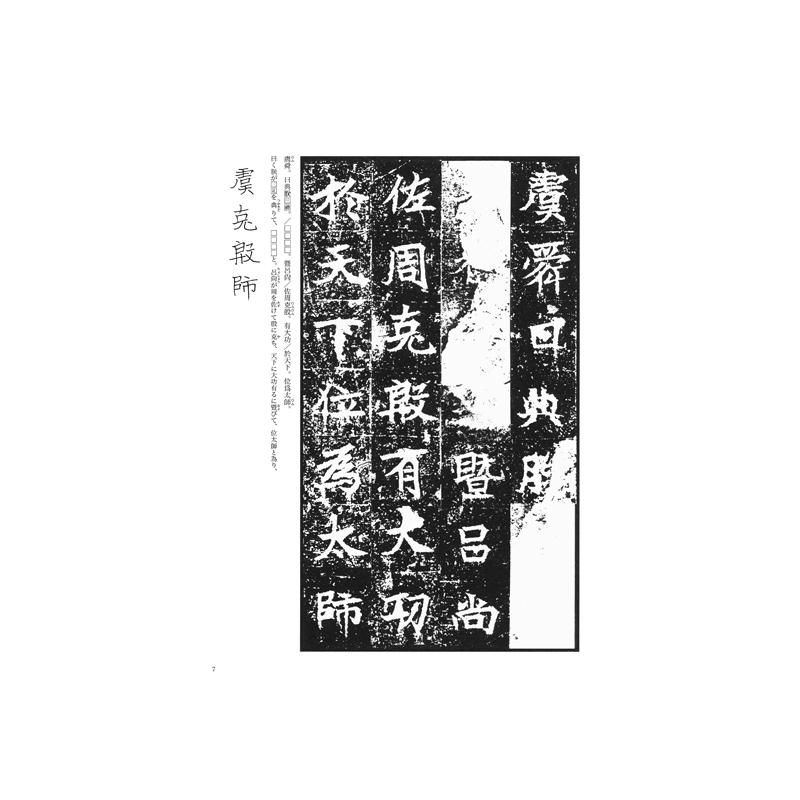 虞舜曰典朕
曁呂尚
佐周克殷有大功
於天下位為太師
虞舜。曰典朕□禮。／□□□□。曁呂尚／佐周克殷、有大功／於天下。位爲太師。
曰く朕が□禮を典りて、□□□□と。呂尚が周を佐けて殷に克ち、天下に大功有るに曁びて、位太師と為り、
虞克殷師
7